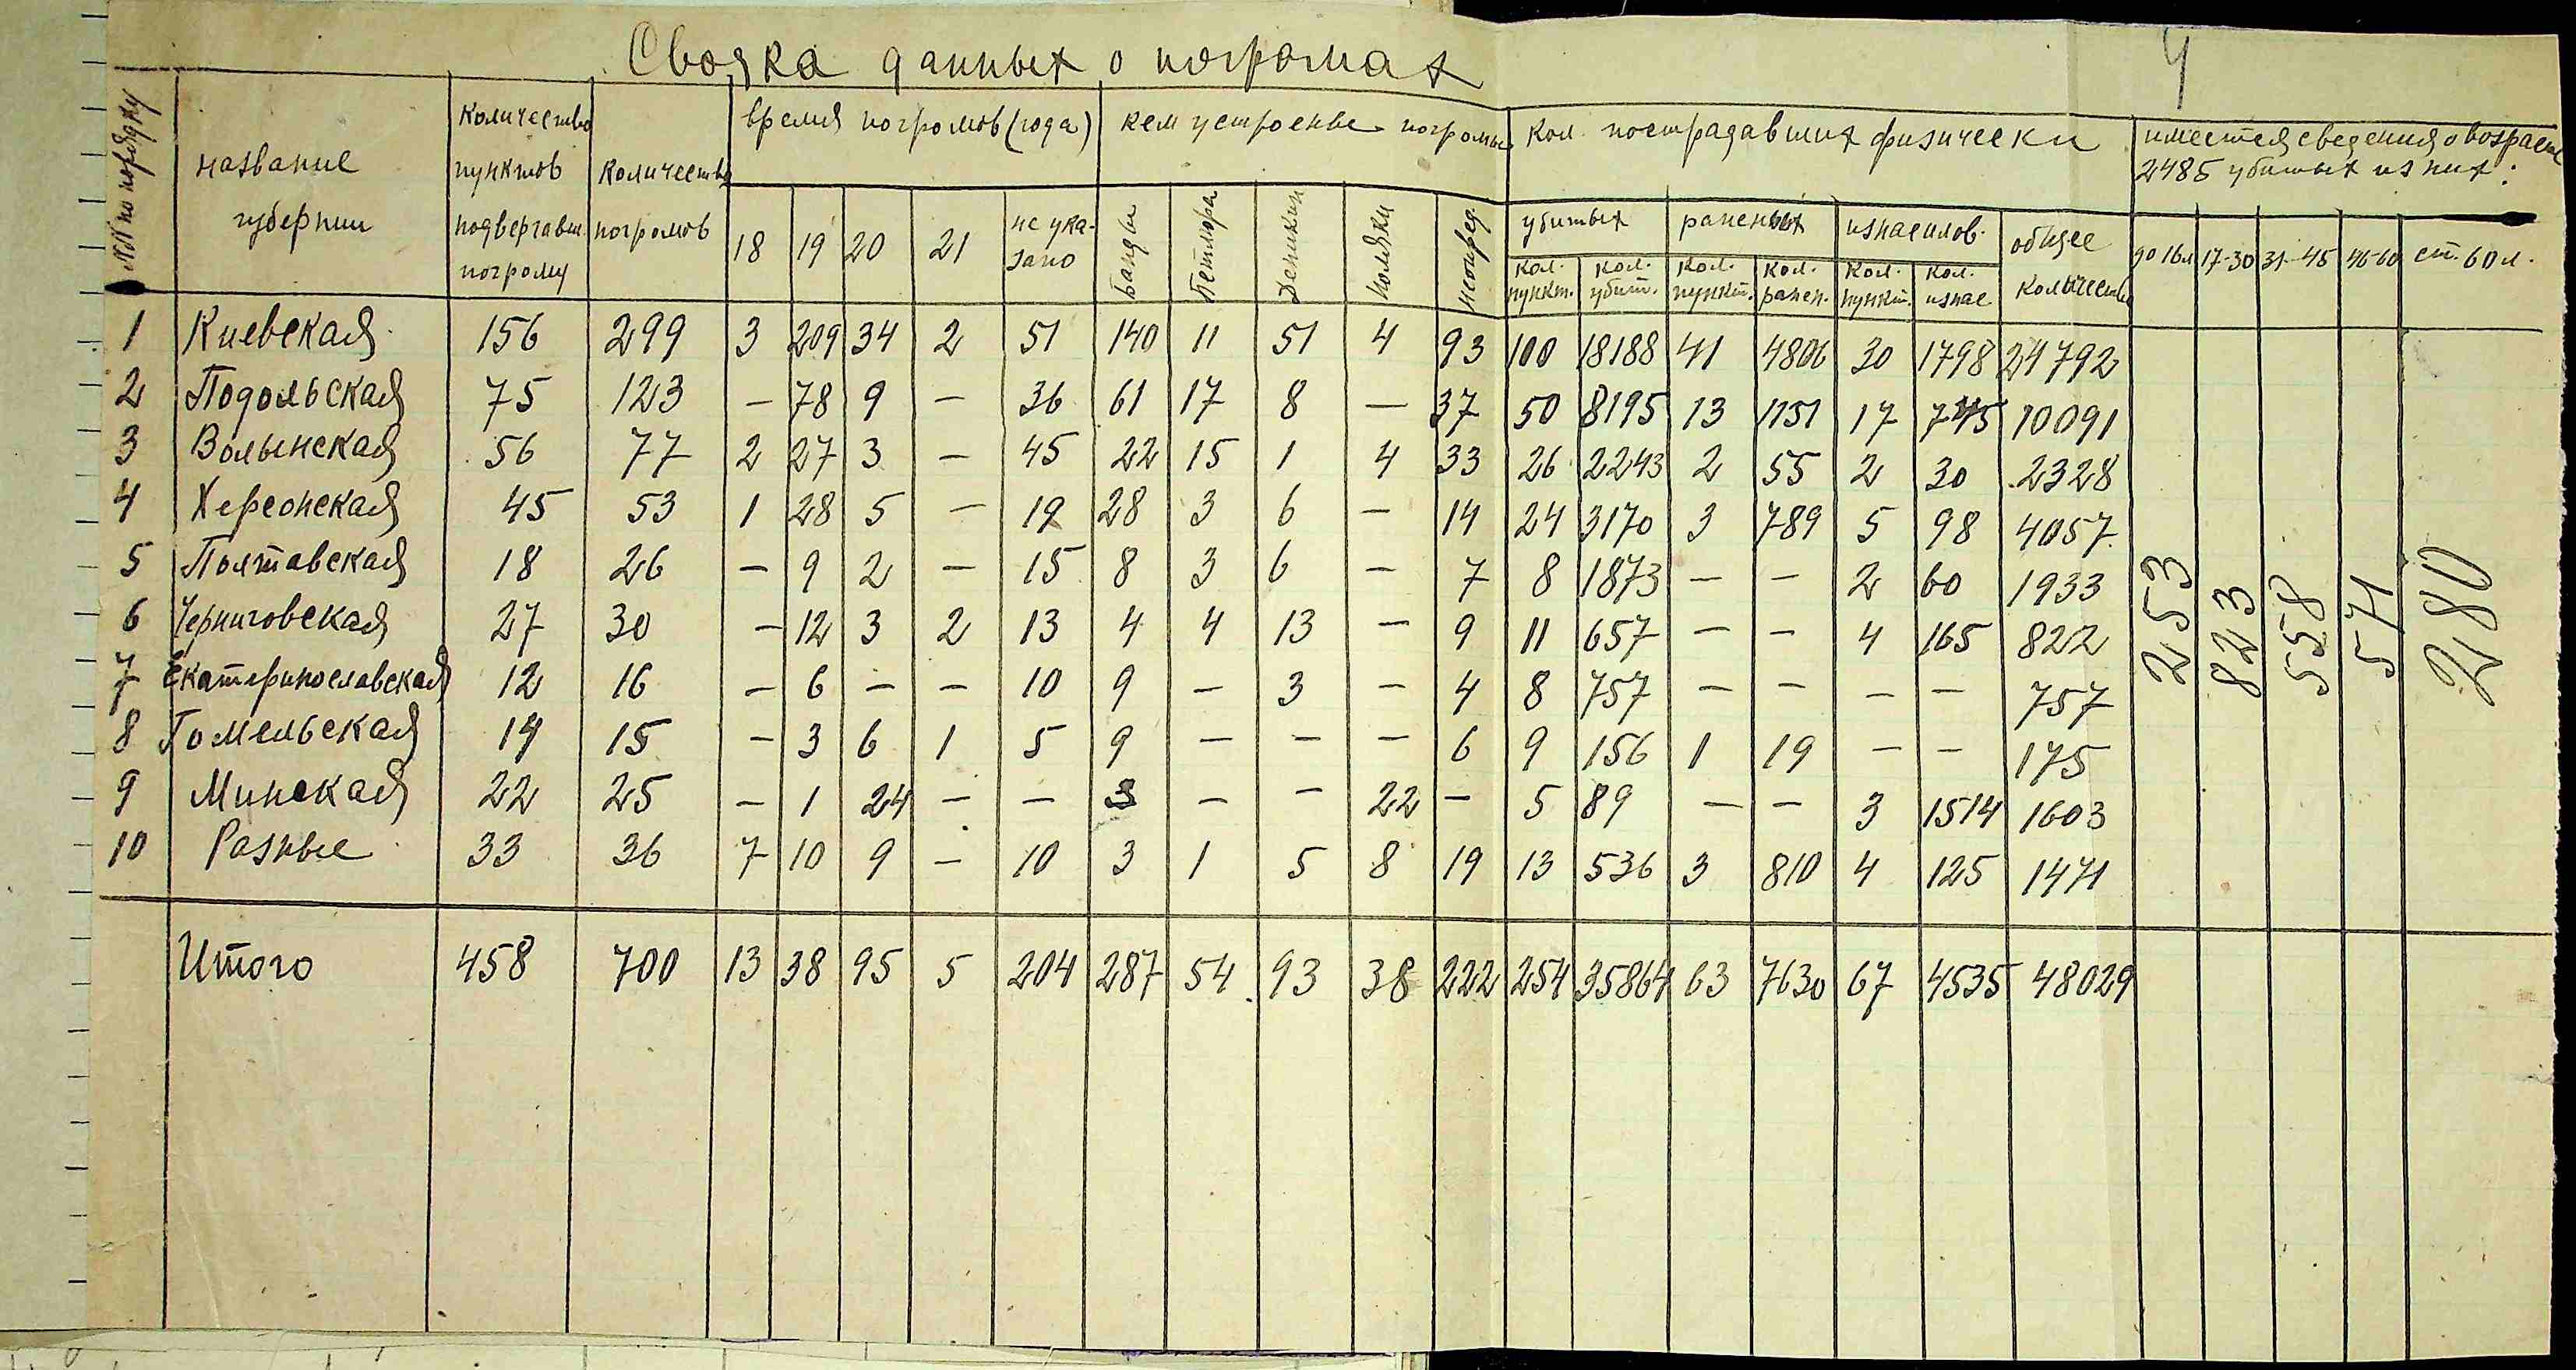 Сводка данных о погромах
4
№№ по порядку
название губернии
количество пунктов подвергавш. погрому
количество погромов
время погромов (года)
кем устроены погромы
кол. пострадавших физически
имеется сведения о возрасте
2485 убитых из них:
18 19 20 21 не указано
Банды Петлюра Деникин поляки неопред.
убитых раненых изнасилов. общее количество
кол. пункт. кол. убит. кол. пункт. кол. ранен. кол. пункт. кол. изнас
до 16 л 17-30 31-45 46-60 ст. 60 л.
1 Киевская 156 299 3 209 34 2 51 140 11 51 4 93 100 18188 41 4806 30 1798 24792
2 Подольская 75 123 — 78 9 — 36 61 17 8 — 37 50 8195 13 1151 17 745 10091
3 Волынская 56 77 2 27 3 — 45 22 15 1 4 33 26 2243 2 55 2 30 2328
4 Херсонская 45 53 1 28 5 — 19 28 3 6 — 14 24 3170 3 789 5 98 4057
5 Полтавская 18 26 — 9 2 — 15 8 3 6 — 7 8 1873 — — 2 60 1933
6 Черниговская 27 30 — 12 3 2 13 4 4 13 — 9 11 657 — — 4 165 822
7 Екатеринославская 12 16 — 6 — — 10 9 — 3 — 4 8 757 — — — — 757
8 Гомельская 14 15 — 3 6 1 5 9 — — — 6 9 156 1 19 — — 175
9 Минская 22 25 — 1 24 — — 3 — — 22 — 5 89 — — 3 1514 1603
10 Разные 33 36 7 10 9 — 10 3 1 5 8 19 13 536 3 810 4 125 1471
253 823 558 571 280
Итого 458 700 13 38 95 5 204 287 54 93 38 222 254 35864 63 7630 67 4535 48029